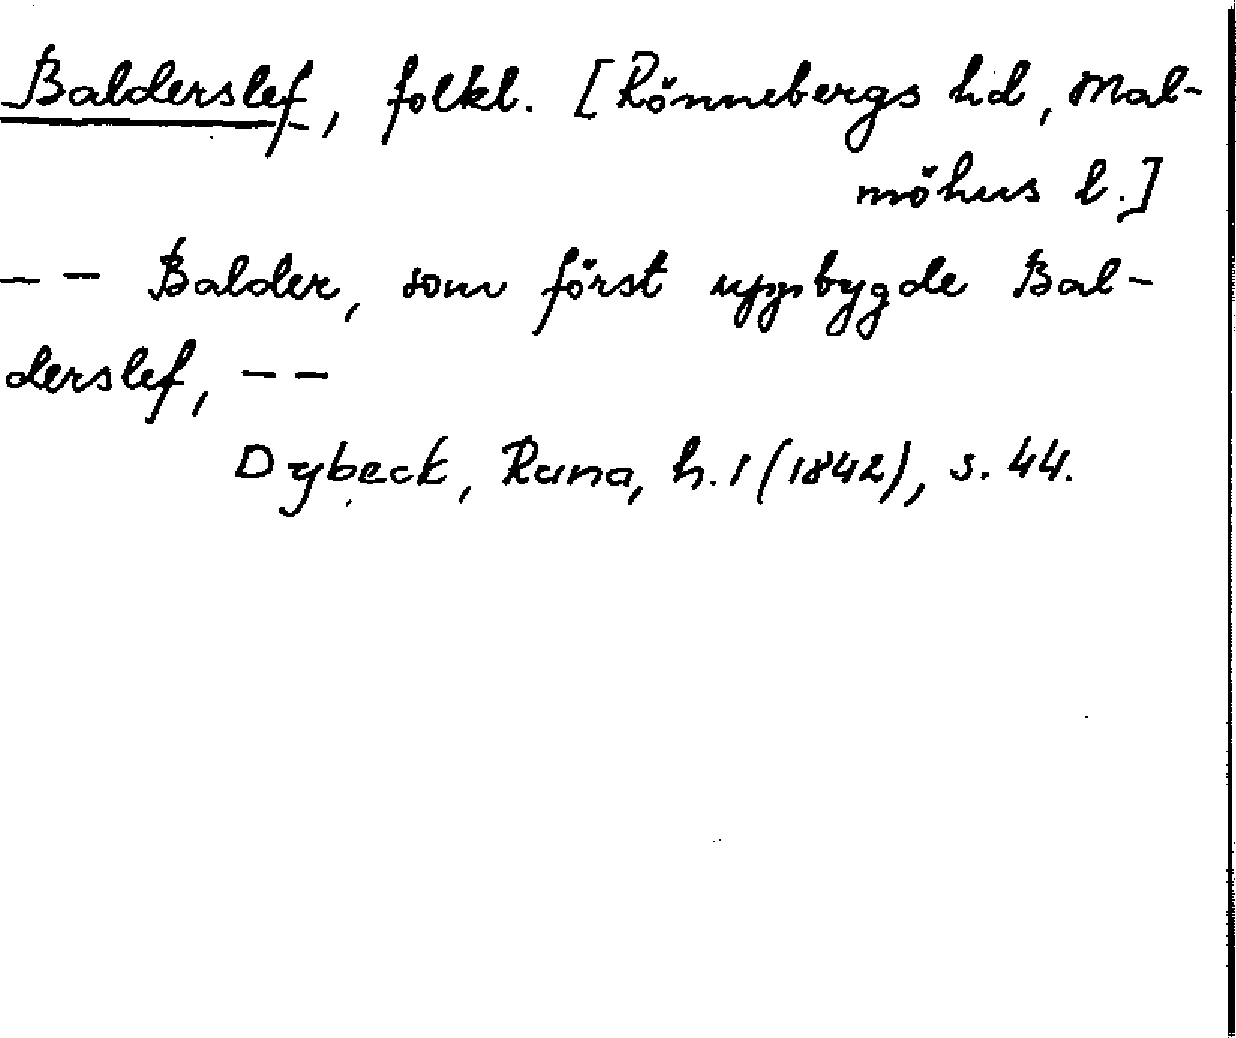 Balderslef, folkl. [Rönnebergs hd, Mal-
möhus l.]
-- Balder, som först uppbygde Bal-
derslef, --
Dybeck, Runa, h. 1 (1842), s. 44.